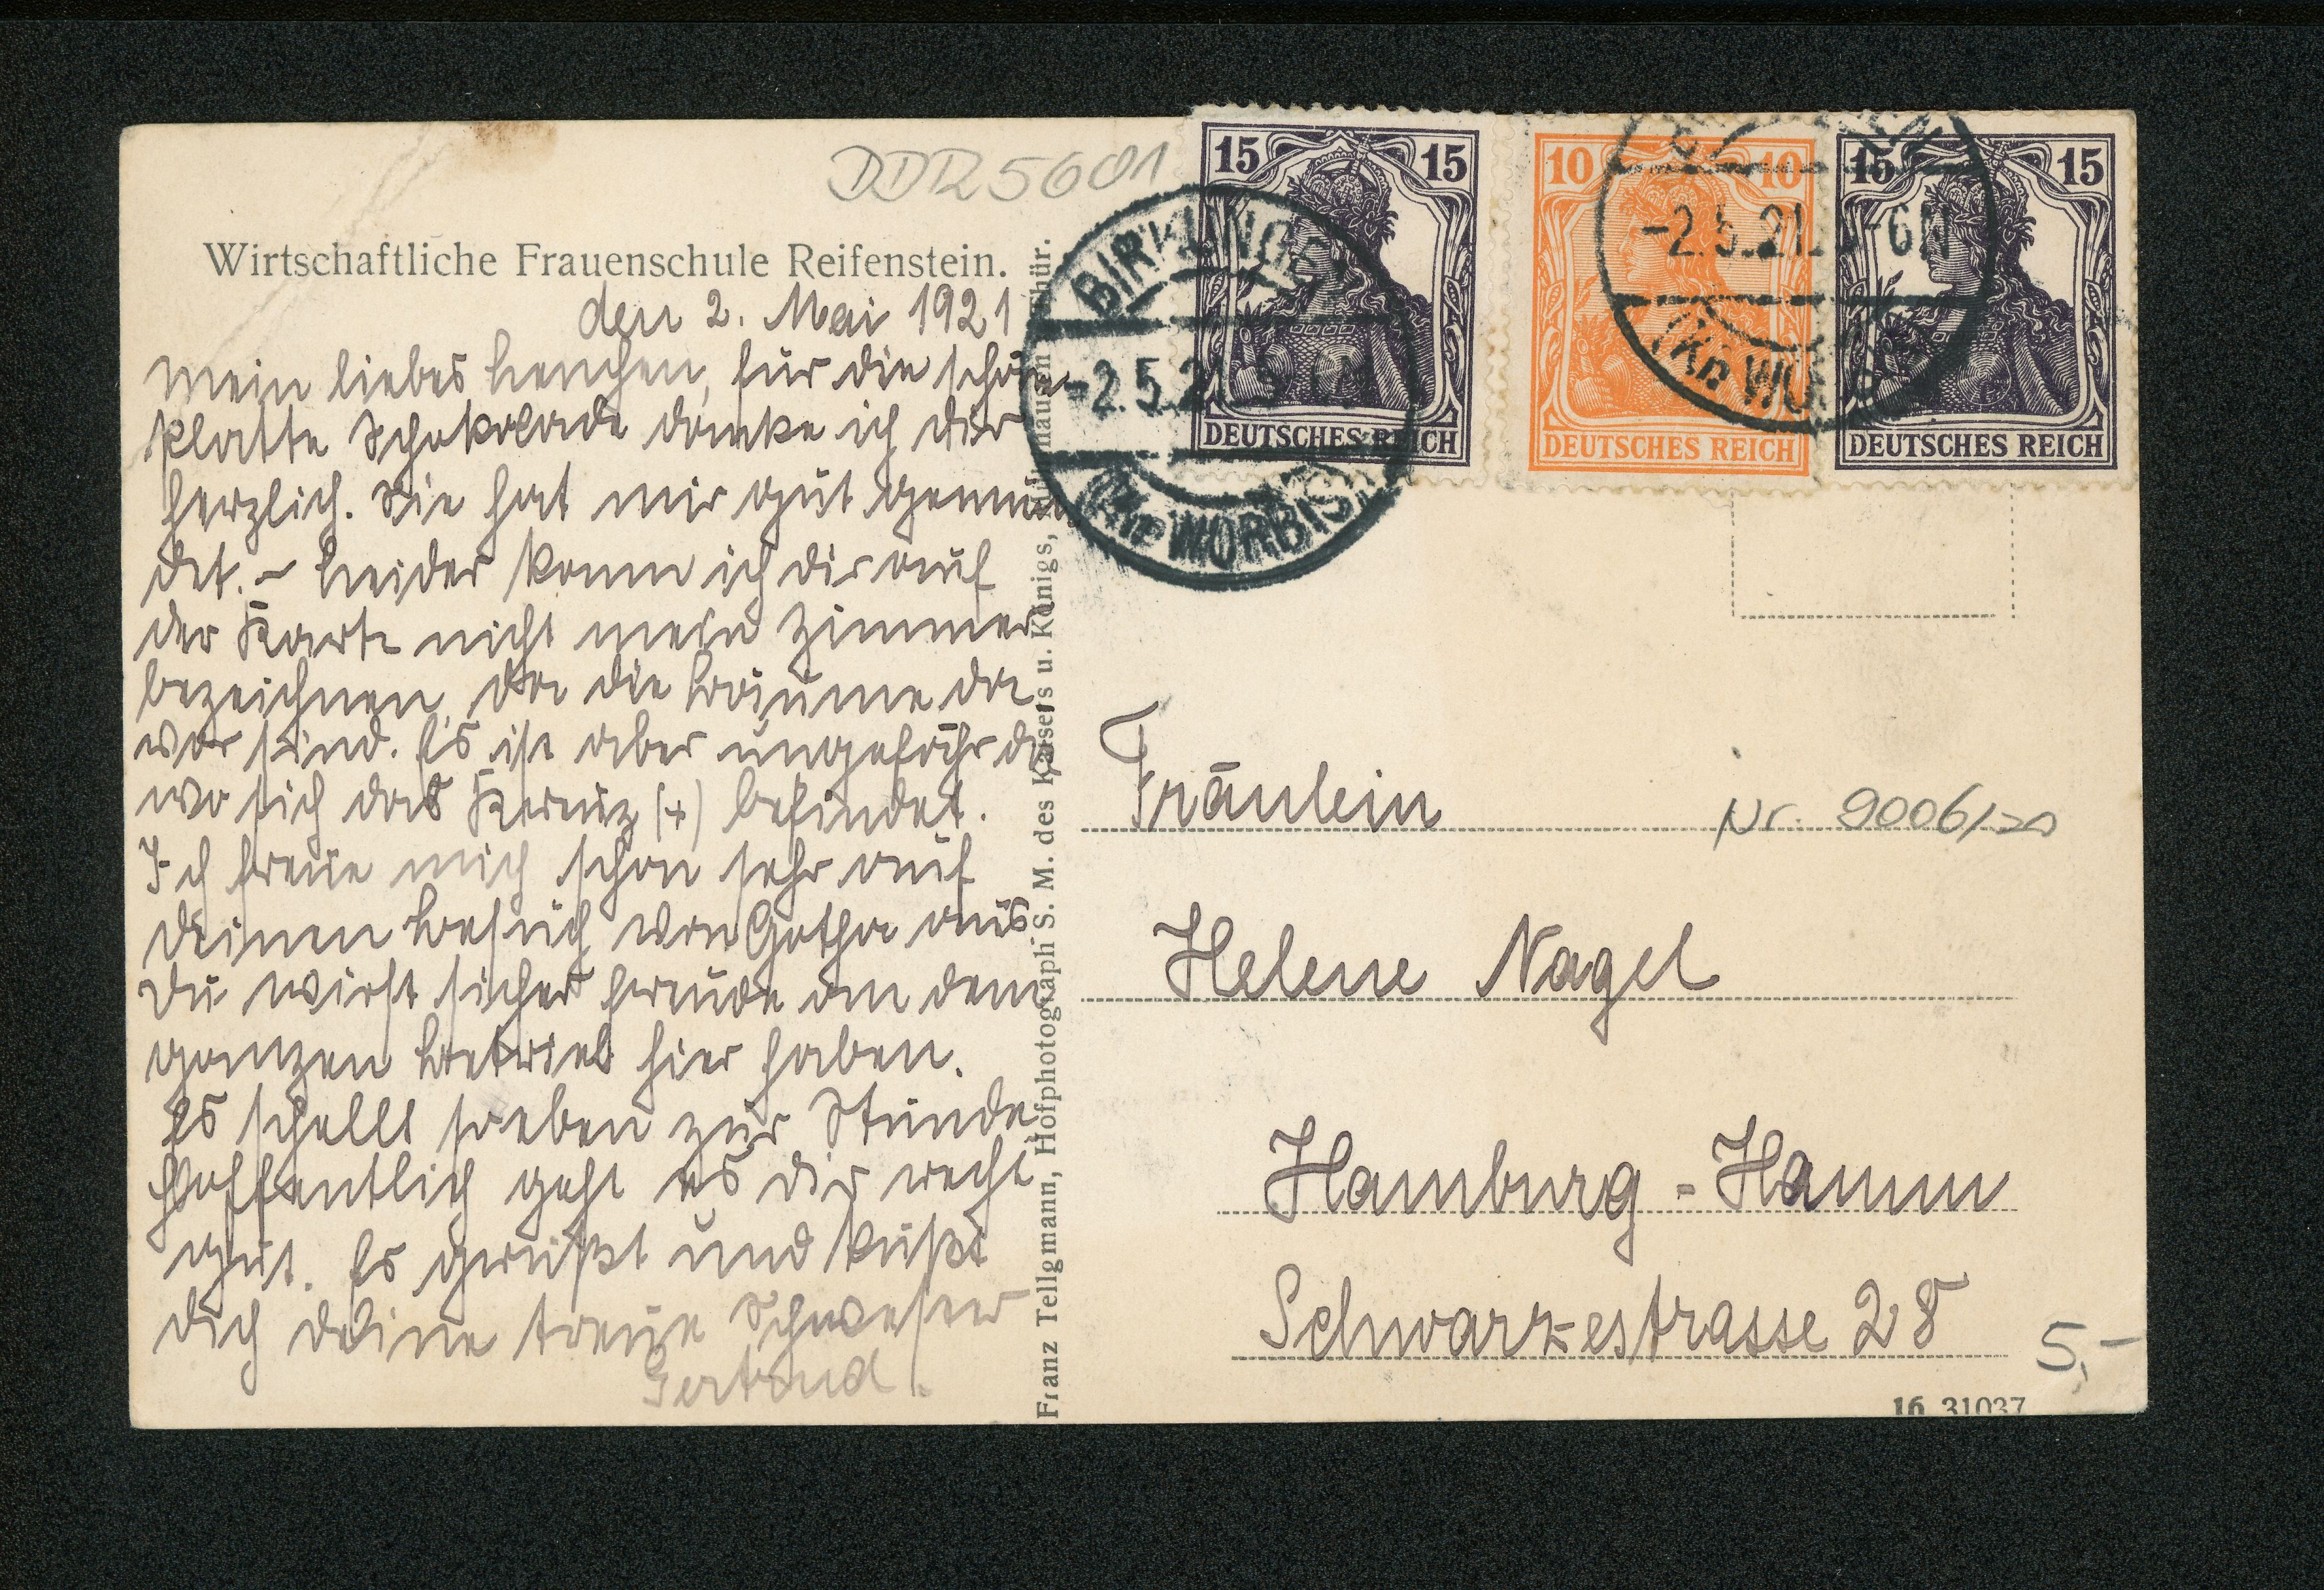 DDR 5601
Wirtschaftliche Frauenschule Reifenstein.
den 2. Mai 1921
Mein liebes Lenchen, für die schöne
Platte Schokolade danke ich dir
herzlich. Sie hat mir gut gemun
det. – Leider kann ich dir auf
der Karte nicht mein Zimmer
bezeichnen, da die Bäume da
vor sind. Es ist aber ungefähr da,
wo sich das Kreuz (+) befindet.
Ich freue mich schon sehr auf
deinen Besuch von Gotha aus.
Du wirst sicher Freude an dem
ganzen Betrieb hier haben.
Es schellt soeben zur Stunde.
Hoffentlich geht es dir recht
gut. Es grüßt und küßt
dich deine treue Schwester
Gertrud.
Franz Tellgmann, Hofphotograph S. M. des Kaisers u. Königs, Thür.
15 15
DEUTSCHES REICH
10 10
DEUTSCHES REICH
15 15
DEUTSCHES REICH
BIRKUNGEN
-2.5.21
(Kr. WORBIS)
-2.5.21. 5-6N
(Kr. WORBIS)
Fräulein
Nr. 9006/20
Helene Nagel
Hamburg - Hamm
Schwarzestrasse 28
5,-
16 31037